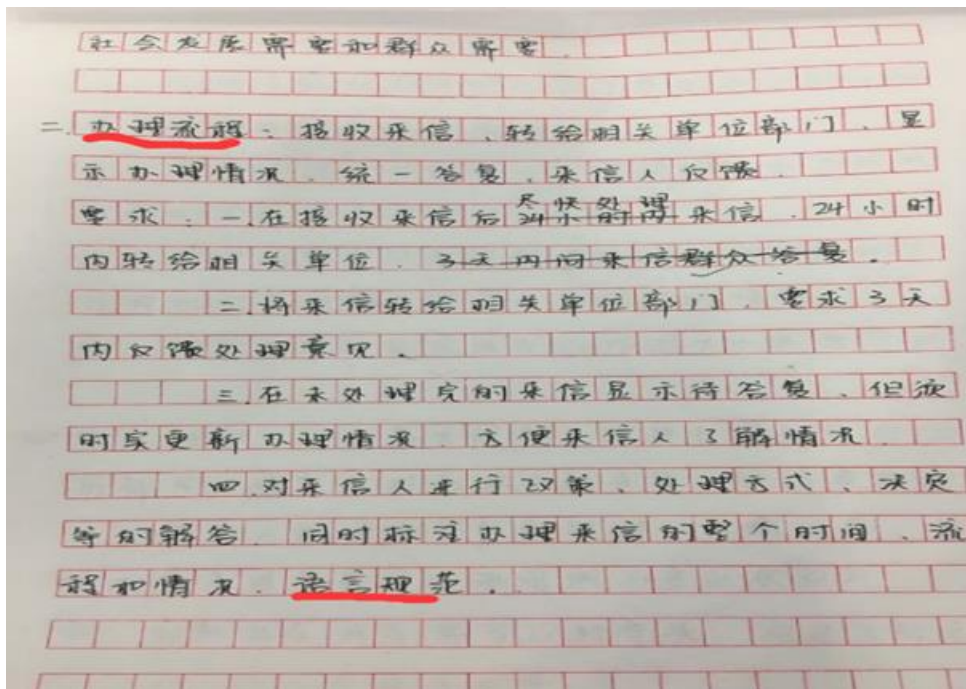 社会发展需要和群众需要.
二.办理流程：接收来信、转给相关单位部门、显
示办理情况、统一答复、来信人反馈.
要求：一.在接收来信后尽快处理24小时内来信、24小时
内转给相关单位、3天内向来信群众答复。
二.将来信转给相关单位部门、要求3天
内反馈处理意见。
三.在未处理完的来信显示待答复、但须
时实更新办理情况 方便来信人了解情况
四.对来信人进行政策、处理方式、决定
等的解答、同时标注办理来信的整个时间、流
程和情况、语言规范。